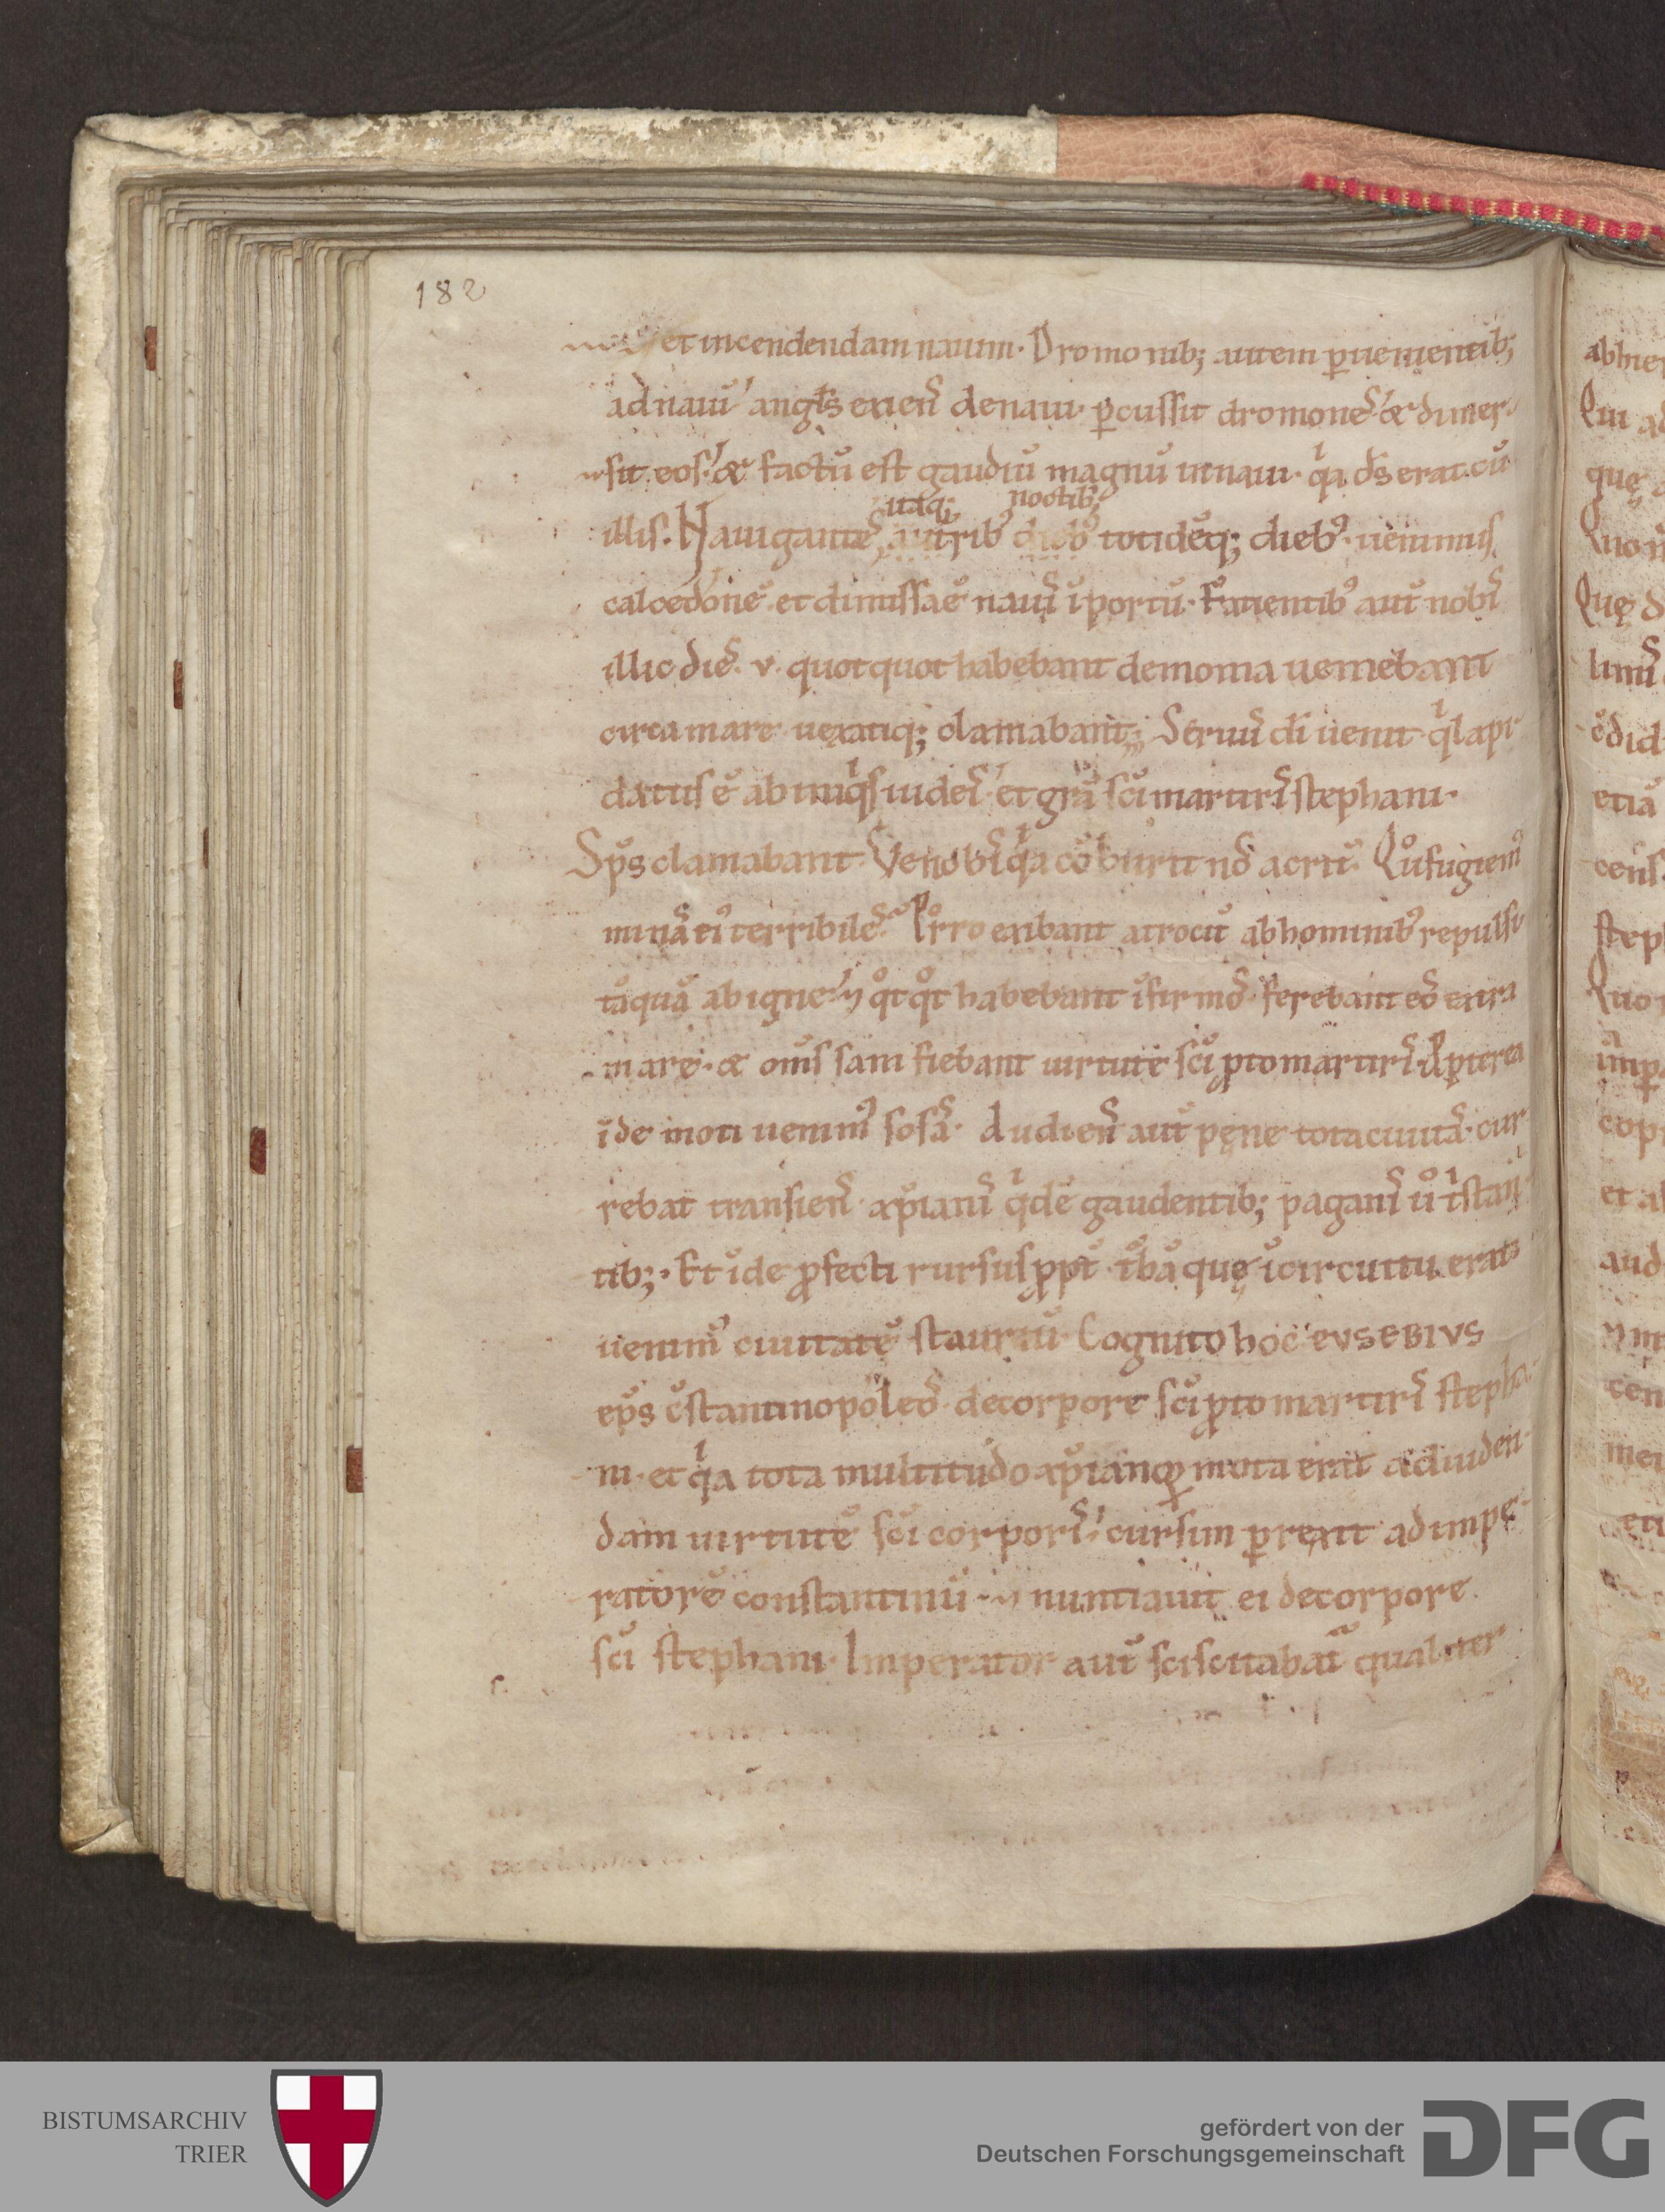 182
et incendendam nauim. Dromonib; autem ꝑuenientib;
ad nauī angl̄s exien̄ de naui ꝑcussit dromonē & dimer
sit eos. & factū est gaudiū magnū in naui. qͥa ds̄ erat cū
itaq; noctib;
illis. Nauigantes, autribꝰ diebꝰ totidēq; diebꝰ uenimus
calcedonē et dimissaē nauī ī portū. Fatientibꝰ aut̄ nobis
illic dies v. quotquot habebant demonia ueniebant
circa mare uexatiq; clamabant; Seruus dī uenit qͥ lapi
datus ē ab iniqͥs iudeis et grā sc̄i martiris stephani.
Sp̄s clamabant Ve nobis qͥa cōburit nos acrit̄ Qͦ fugiemꝰ
minas eiꝰ terribiles. Porro exibant atrocit̄ ab hominibꝰ repulsi
tāquā ab igne. ⁊ qͦtqͦt habebant īfirmos ferebant eos extra
mare. & om̄s sani fiebant uirtute sc̄i ꝓtomartiris. Ꝓpterea
īde moti uenimꝰ sosā. Audiens aut̄ pęne tota ciuitas cur
rebat transiens xp̄ianis qͥdē gaudentib; paganis ūͦ tͥstan
tib;. Et īde ꝓfecti rursus ꝓpt̄ ī... quę ī circuitu erat
uenimꝰ ciuitatē stauriū. Cognito hoc EVSEBIVS
ep̄s cōstantinopoleos de corpore sc̄i ꝓtomartiris stepha
ni. et qͥa tota multitudo xp̄ianoꝝ mota erat ad uiden
dam uirtutē sc̄i corporis. cursim ꝑrexit ad impe
ratorē constantinū ⁊ nuntiauit ei de corpore
sc̄i stephani. Imperator aut̄ sciscitabat᷑ qualiter
abhie
Qui a
quę
Quę d
etiā
cens
step
Quo
cop
et a
aud
cen
BISTUMSARCHIV
TRIER
gefördert von der
Deutschen Forschungsgemeinschaft
DFG